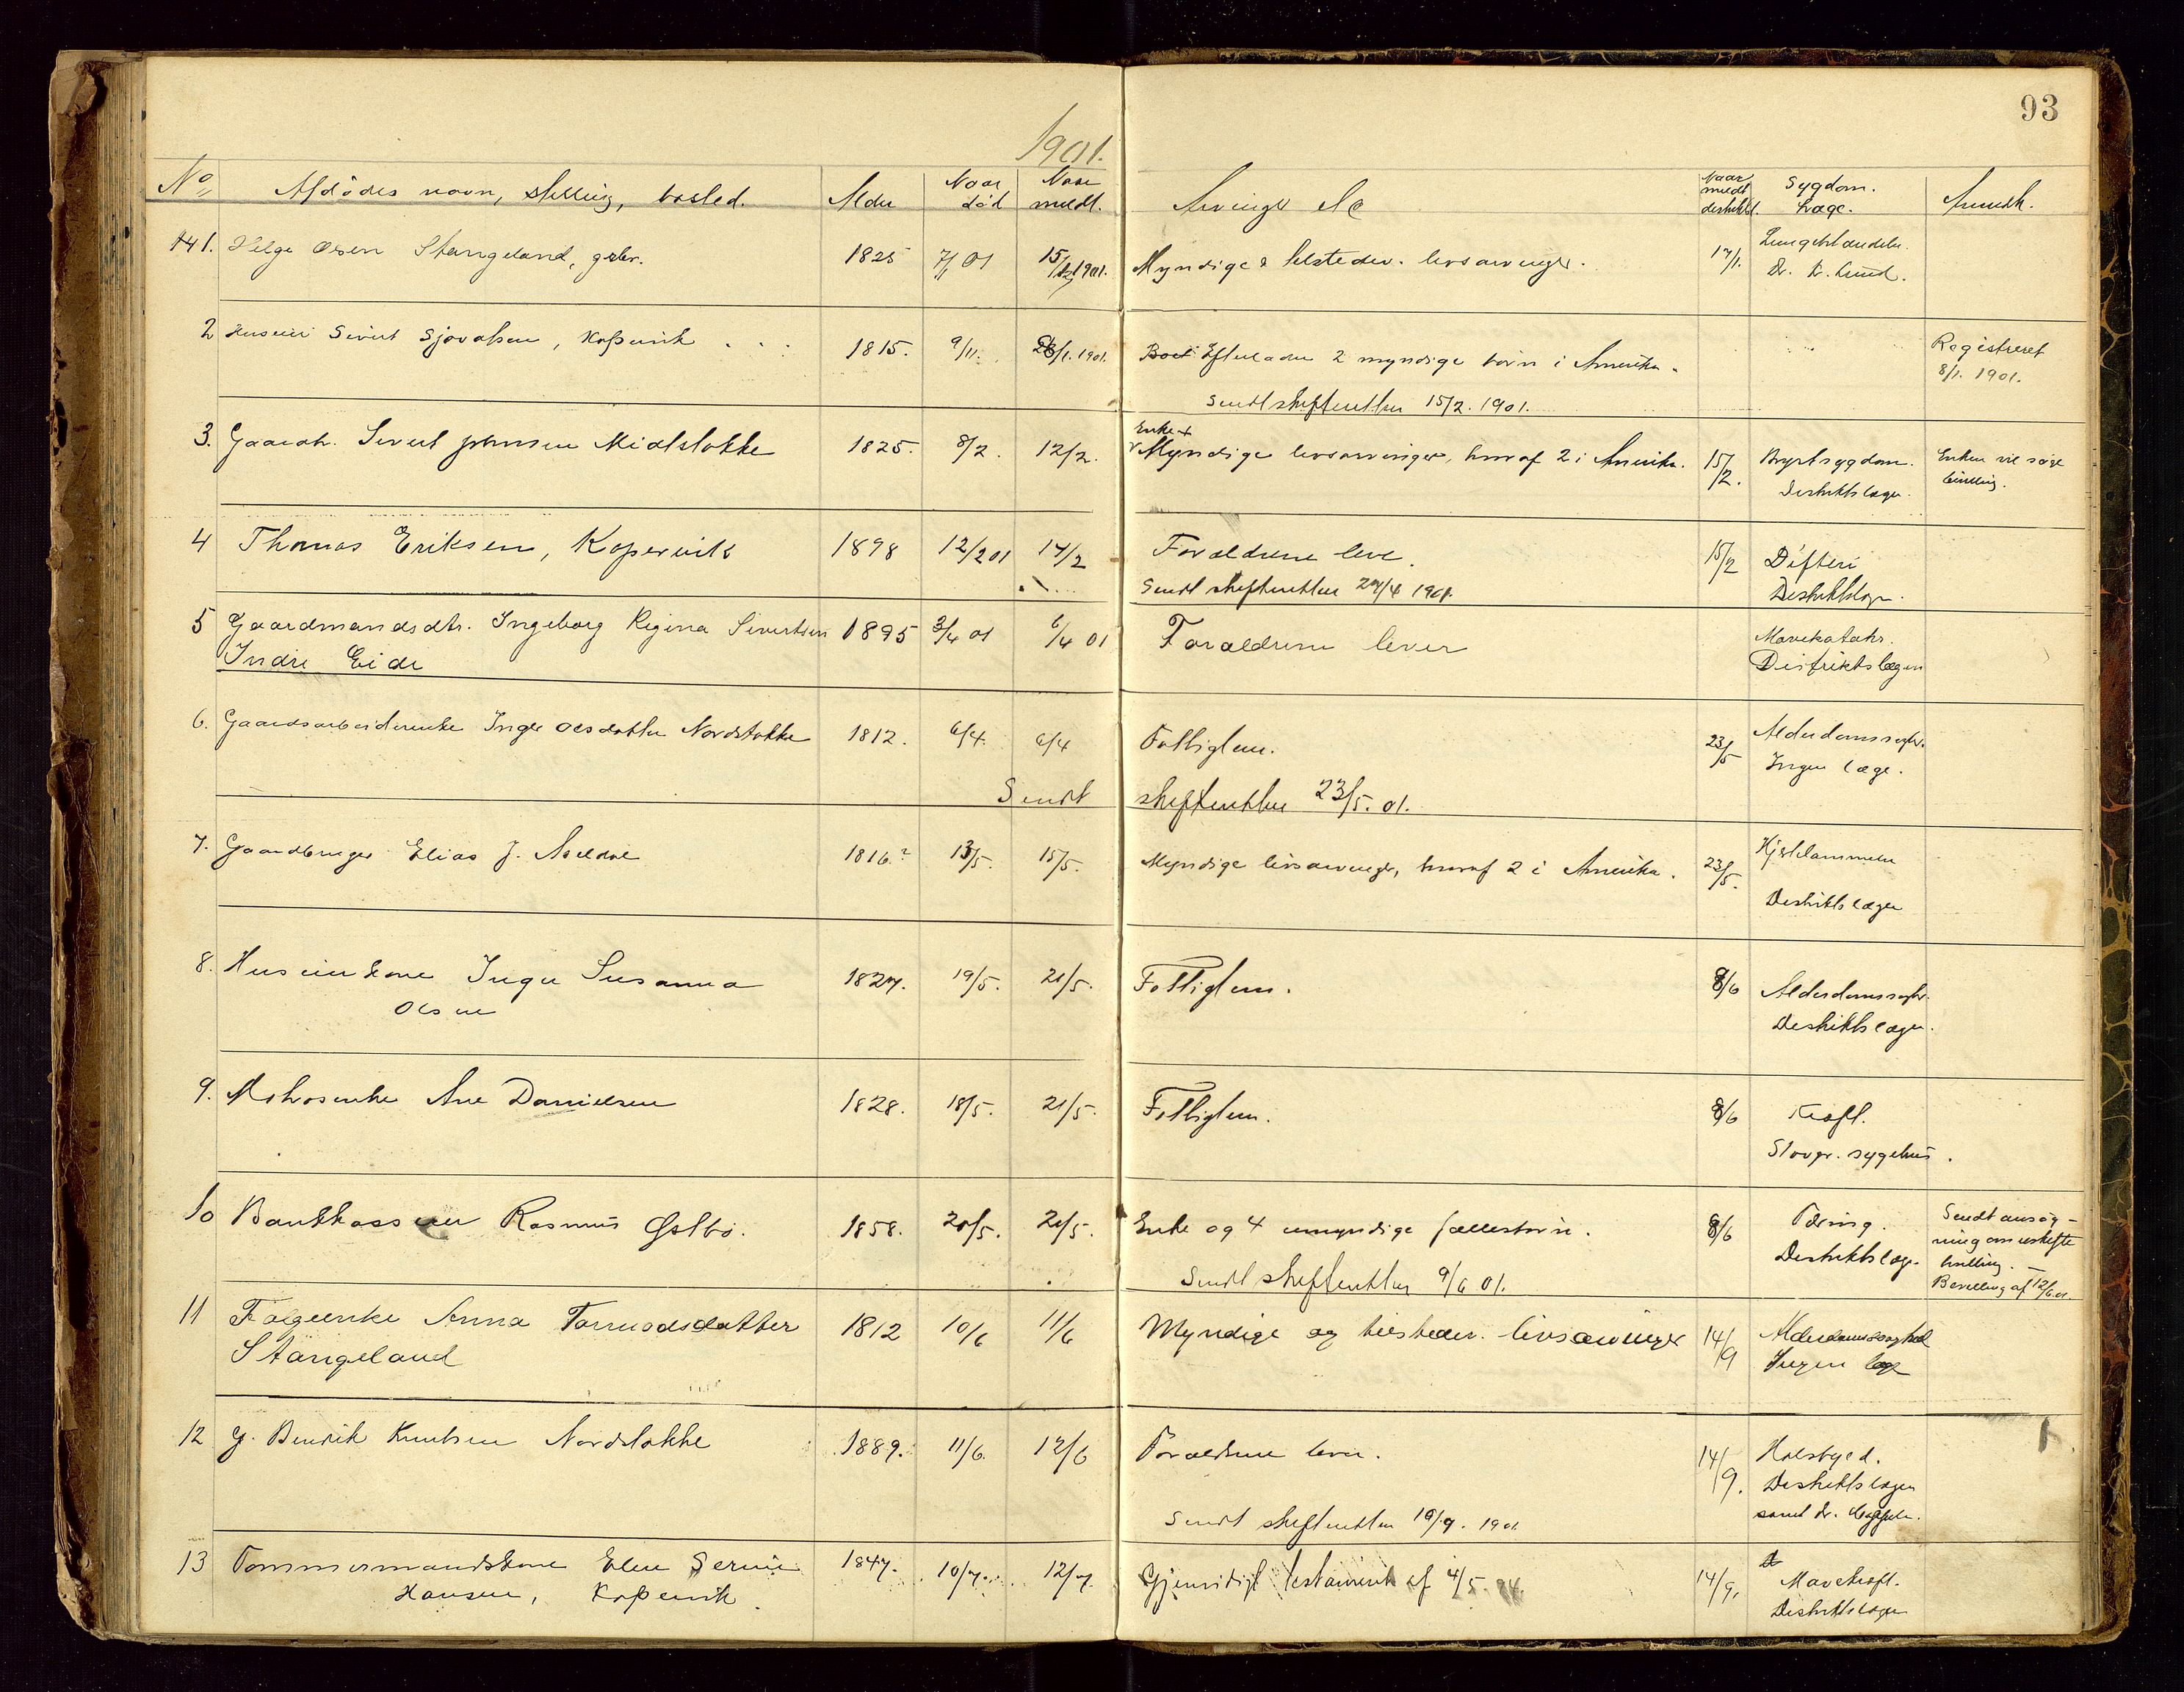 93
1901.
No Afdødes navn, stilling, bosted. Alder Naar død Naar meldt. Arvinger etc Naar meldt distriktsl. Sygdom. Læge. Anmerk.
141. Helge Osen Stangeland, gbr. 1825 7/1 01 15/1 1901. Myndige & tilstedev. livsarvinger. 17/1. Lungebetændelse.
Dr. K. Lund.
2 Husmand Sivert Sjovatsen, Kopervik 1815. 9/11. 28/1. 1901. Efterlader 2 myndige børn i Amerika. Registreret
8/1. 1901.
Sendt skifteretten 15/2. 1901.
3. Gaardbr. Sivert Johnsen Midtstokke 1825. 8/2. 12/2. Enke +
Myndige livsarvinger, hvoraf 2 i Amerika. 15/2. Brystsygdom. Enken vil søge
Distriktslægen. bevilling.
4 Thomas Eriksen, Kopervik 1898 12/2 01 14/2 Forældrene leve. 15/2 Difteri
Sendt skifteretten 24/4 1901. Distriktslægen.
5 Gaardmandsdtr. Ingeborg Regina Sivertsen 1895 3/4 01 6/4 01 Forældrene lever Mavekatahr.
Indre Eide Distriktslægen
6. Gaardsarbeiderenke Inger Olsdatter Nordstokke 1812. 6/4. 6/4 Fattiglem. 23/5 Alderdomssvagh.
Ingen læge.
Sendt skifteretten 23/5. 01.
7. Gaardbruger Elias J. Aseldal 1816? 13/5. 15/5. Myndige livsarvinger, hvoraf 2 i Amerika. 23/5. Hjertelammelse
Distriktslægen
8. Husmandskone Inger Susanna 1827. 19/5. 21/5. Fattiglem. 8/6 Alderdomssvagh.
Olsen Distriktslægen.
9. Matrosenke Ane Danielsen 1828. 18/5. 21/5. Fattiglem. 8/6 Kræft.
Stavgr. sygehus.
10 Bankkasserer Rasmus Østbø. 1858. 20/5. 21/5. Enke og 4 umyndige fællesbørn. 8/6 Tæring. Sendt ansøg-
ning om uskifte
Distriktslæge bevilling. -
Sendt skifteretten 9/6 01. Bevilling af 12/6 01.
11 Følgeenke Anna Tormodsdatter 1812 10/6 11/6 Myndige og tilstedev. livsarvinger 14/9 Alderdomssvaghed
Stangeland Ingen læge
12 G. Bendik Knutsen Nordstokke 1889. 11/6. 12/6 Forældrene lever. 14/9. Halsbyld.
Distriktslægen
Sendt skifteretten 19/9. 1901. samt Dr.
13 Tømmermandskone Elen Serine 1847. 10/7. 12/7. Gjensidigt testament af 4/5. 14/9. Mavekræft.
Hansen, Kopervik. Distriktslægen